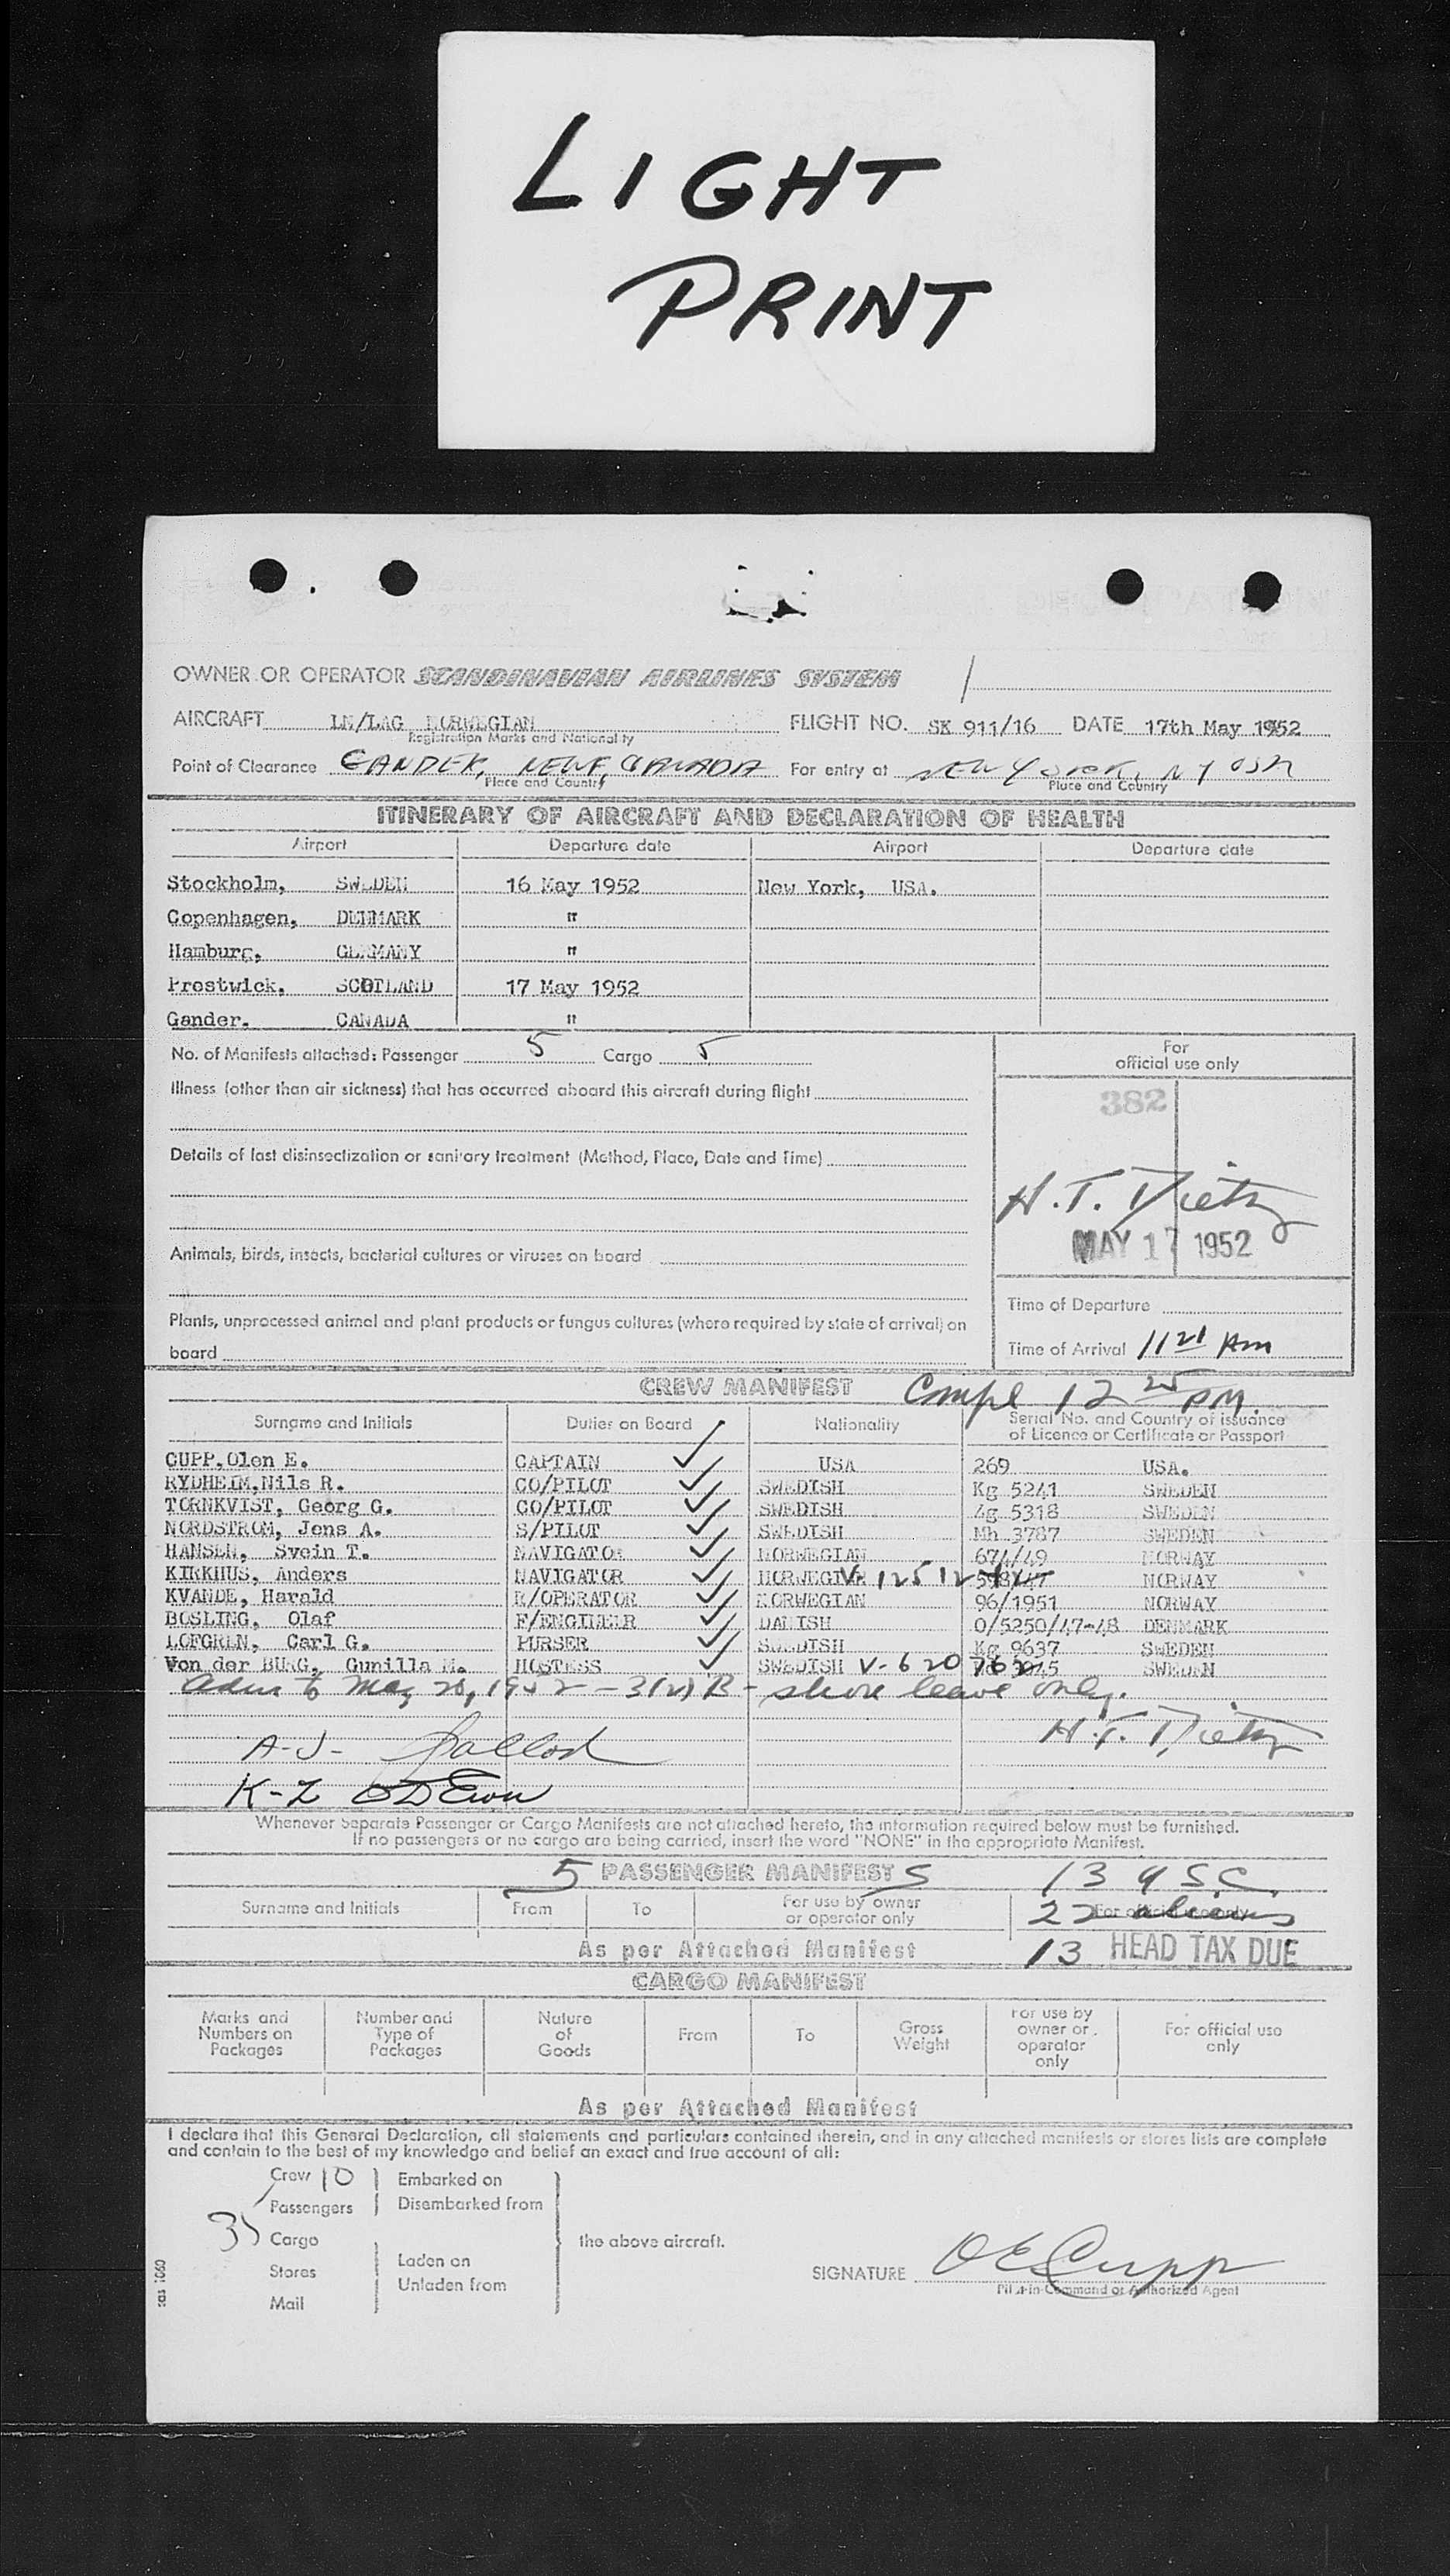 LIGHT
PRINT
OWNER OR OPERATOR SCANDINAVIAN AIRLINES SYSTEM
AIRCRAFT LN/LAG NORWEGIAN FLIGHT NO. SK 911/16 DATE 17th May 1952
Registration Marks and Nationality
Point of Clearance GANDER, NEWF, CANADA For entry at NEW YORK, NY USA
Place and Country Place and Country
ITINERARY OF AIRCRAFT AND DECLARATION OF HEALTH
Airport Departure date Airport Departure date
Stockholm, SWEDEN 16 May 1952 New York, USA.
Copenhagen, DENMARK "
Hamburg, GERMANY "
Prestwick, SCOTLAND 17 May 1952
Gander, CANADA "
No. of Manifests attached: Passenger 5 Cargo 5
For
official use only
Illness (other than air sickness) that has occurred aboard this aircraft during flight
382
Details of last disinsectization or sanitary treatment (Method, Place, Date and Time)
H.T. Dietz
MAY 17 1952
Animals, birds, insects, bacterial cultures or viruses on board
Time of Departure
Plants, unprocessed animal and plant products or fungus cultures (where required by state of arrival) on
board
Time of Arrival 11 21 Am
CREW MANIFEST Compl 12 25 PM.
Surname and Initials Duties on Board Nationality Serial No. and Country of issuance
of Licence or Certificate or Passport
CUPP, Olen E. CAPTAIN USA 269 USA.
RYDHEIM, Nils R. CO/PILOT SWEDISH Kg 5241 SWEDEN
TORNKVIST, Georg G. CO/PILOT SWEDISH Zg 5318 SWEDEN
NORDSTROM, Jens A. S/PILOT SWEDISH Mh 3787 SWEDEN
HANSEN, Svein T. NAVIGATOR NORWEGIAN 674/49 NORWAY
KIRKHUS, Anders NAVIGATOR NORWEGIAN 598/47 NORWAY
KVANDE, Harald R/OPERATOR NORWEGIAN 96/1951 NORWAY
BOSLING, Olaf F/ENGINEER DANISH 0/5250/47-48 DENMARK
LOFGREN, Carl G. PURSER SWEDISH Kg 9637 SWEDEN
Von der BURG, Gunilla M. HOSTESS SWEDISH V-620 SWEDEN
Adm to May 25, 1952 - 3(2)B - shore leave only.
H.T. Dietz
A-J-
K-Z
Whenever Separate Passenger or Cargo Manifests are not attached hereto, the information required below must be furnished.
If no passengers or no cargo are being carried, insert the word "NONE" in the appropriate Manifest.
5 PASSENGER MANIFEST S 13 U S.C.
Surname and Initials From To For use by owner
or operator only
For official use only
22 aliens
As per Attached Manifest 13 HEAD TAX DUE
CARGO MANIFEST
Marks and
Numbers on
Packages
Number and
Type of
Packages
Nature
of
Goods
From
To
Gross
Weight
For use by
owner or
operator
only
For official use
only
As per Attached Manifest
I declare that this General Declaration, all statements and particulars contained therein, and in any attached manifests or stores lists are complete
and contain to the best of my knowledge and belief an exact and true account of all:
Crew 10 Embarked on
35 Passengers Disembarked from
Cargo the above aircraft.
Stores Laden on
Unladen from
Mail
SIGNATURE OECupp
Pilot-in-Command or Authorized Agent
sas 1060